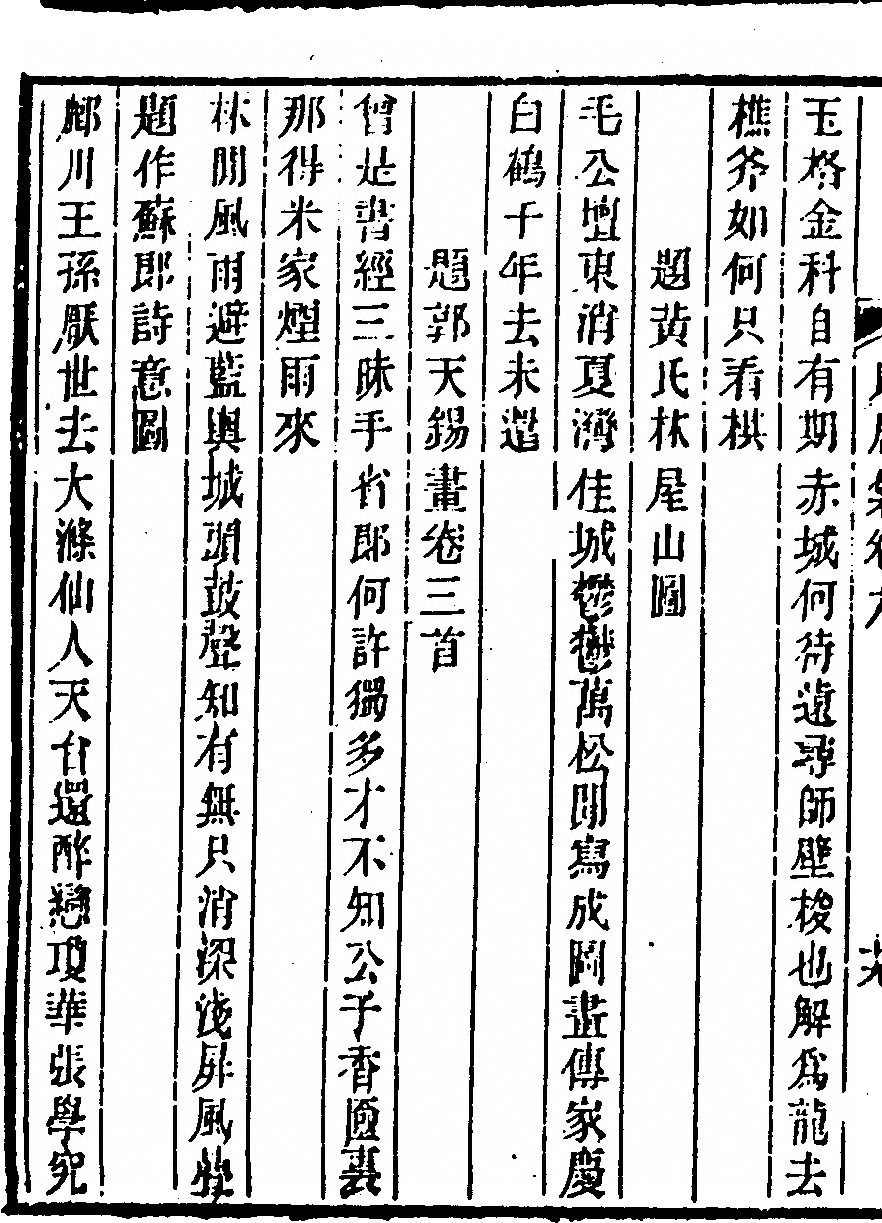 玉格金科自有期赤城何待遠尋師壁梭也解爲龍去
樵斧如何只看棋
題黃氏林屋山圖
毛公壇東消夏灣住城鬱鬱萬松間寫成圖畫傳家慶
白鶴千年去未還
題郭天錫畫卷三首
曾是書經三昧手省郎何許獨多才不知公子香匳裏
那得米家煙雨來
林閒風雨避藍輿城頭鼓聲知有無只消深淺屏風
題作蘇郎詩意圖
鄜川王孫厭世去大滌仙人天台還醉戀瓊華張學究